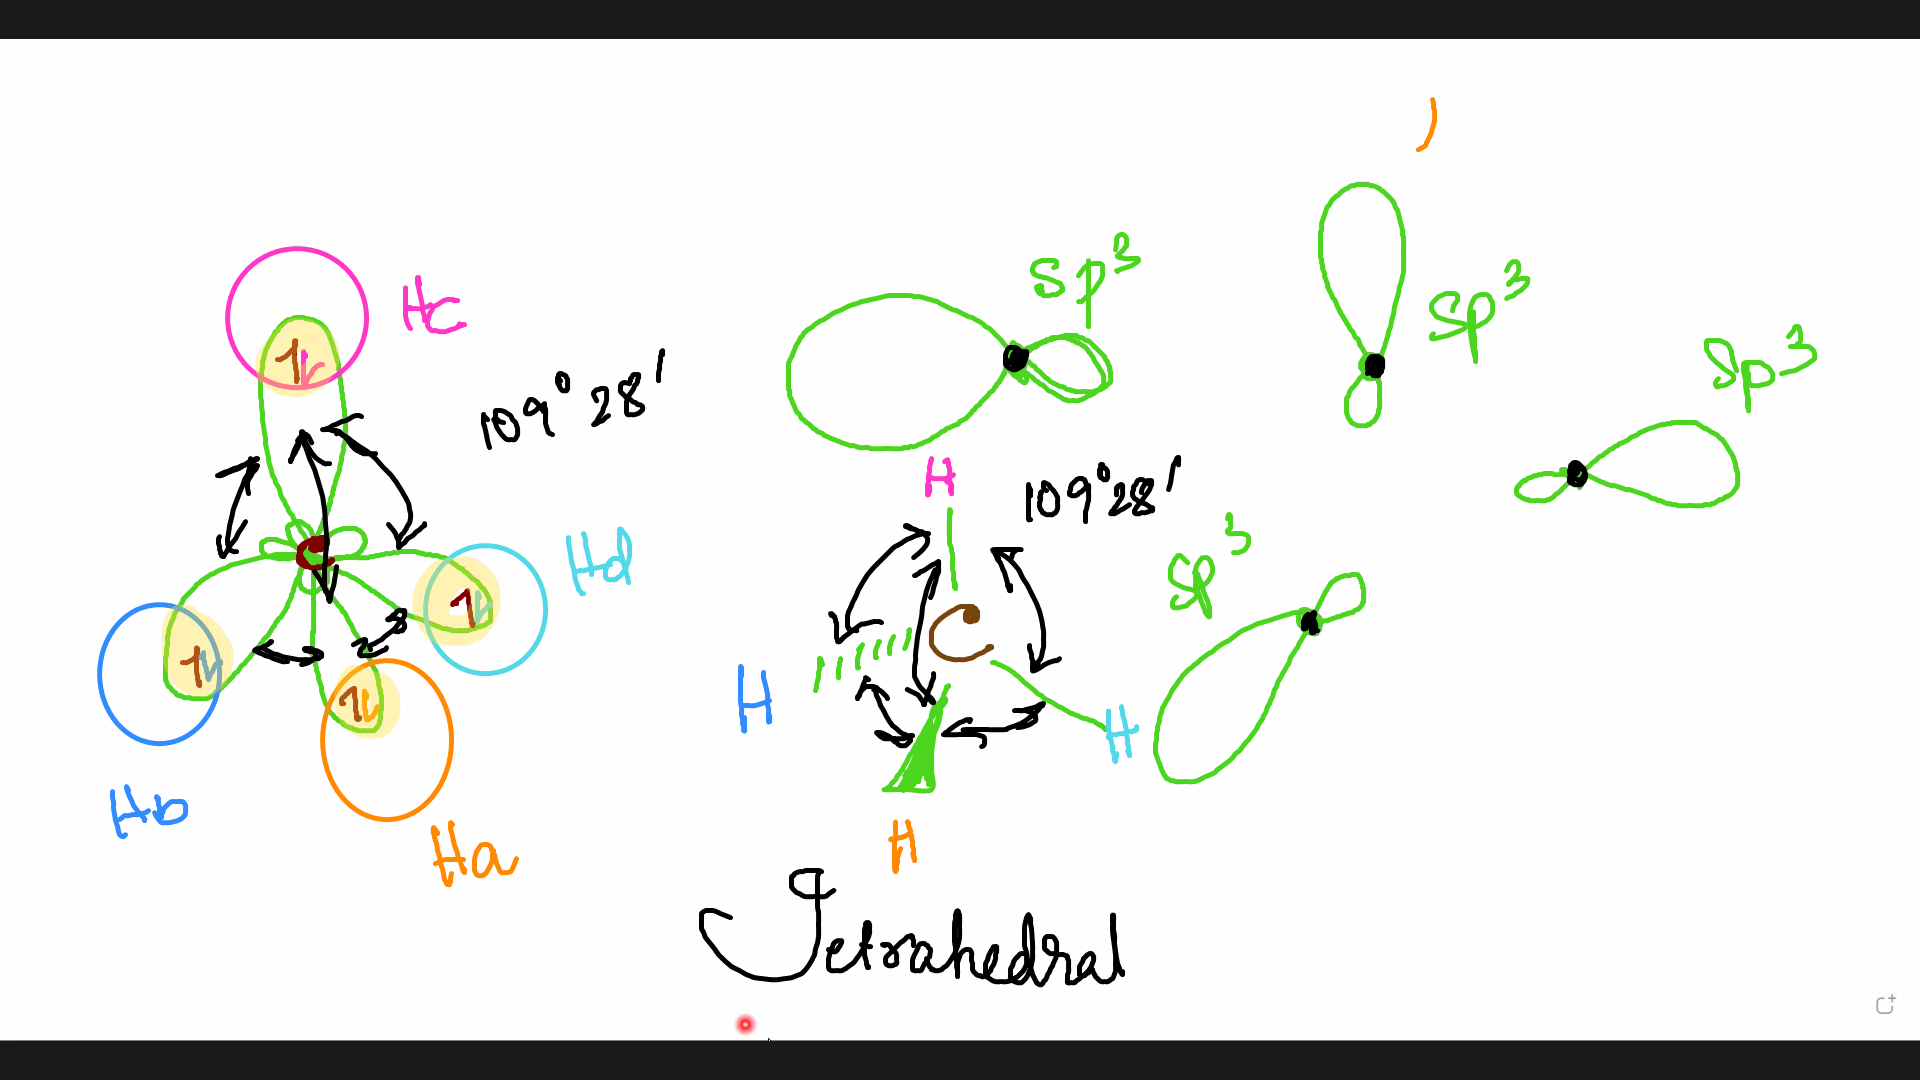 Hc
109° 28'
Hd
Hb
Ha
1 1
1 1
1 1
1 1
sp³
sp³
sp³
sp³
H
109° 28'
C
H
H
H
Tetrahedral